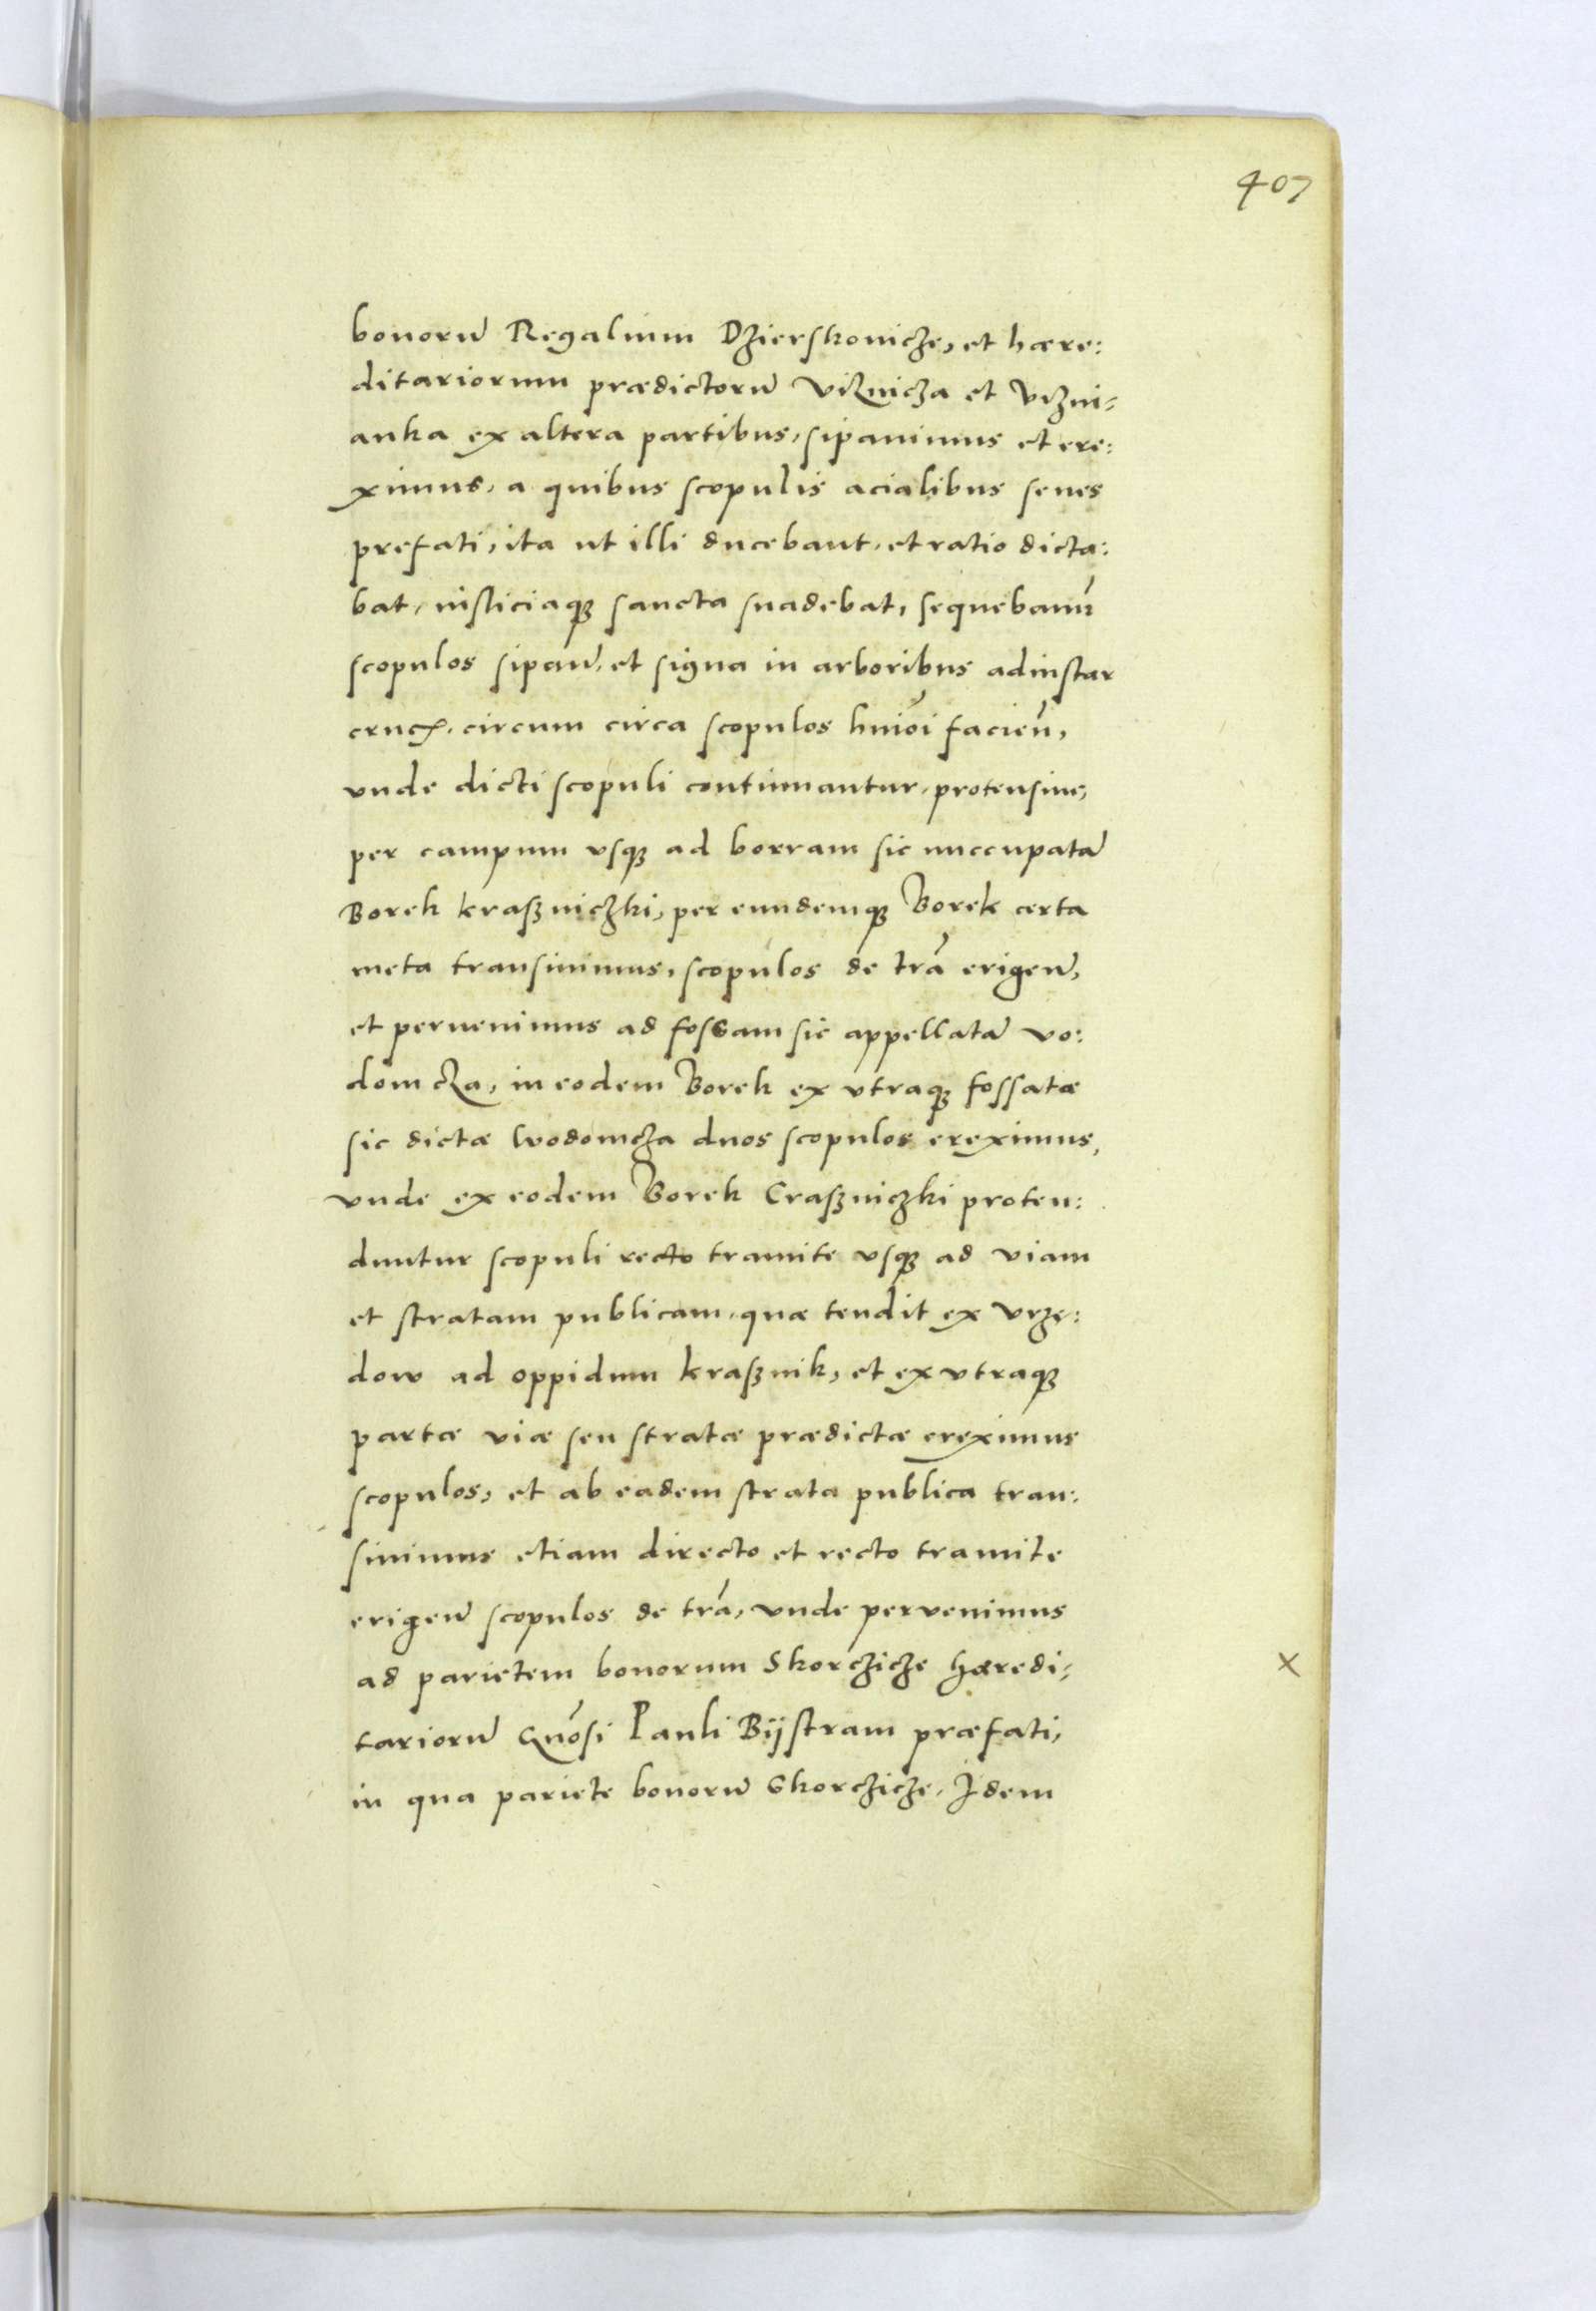 407
bonorũ Regalium Dzierskovicze, et hære:
ditariorum prædictorũ Viznicza et Vizni=
anka ex altera partibus, sipavimus et ere:
ximus, a quibus scopulis acialibus senes
prefati, ita ut illi ducebant, et ratio dicta:
bat, iusticiaqꝫ sancta suadebat, sequebamr̃
scopulos sipañ, et signa in arboribus ad instar
crucꝭ, circum circa scopulos huiõi facieñ,
vnde dicti scopuli continuantur, protensive,
per campum vsqꝫ ad borram sic nuccupatã
Borek kraßniczki, per eundemqꝫ Borek certa
meta transivimus, scopulos de trã erigeñ,
et pervenimus ad fossam sic appellatã vo:
domcza, in eodem Borek ex vtraqꝫ fossatæ
sic dictæ Wodomcza duos scopulos ereximus,
vnde ex eodem Borek Craßniczki proten:
duntur scopuli recto tramite vsqꝫ ad viam
et stratam publicam, quæ tendit ex Vrzę:
dow ad oppidum kraßnik, et ex vtraqꝫ
partæ viæ seu stratæ prædictæ ereximus
scopulos, et ab eadem strata publica tran:
sivimus etiam directo et recto tramite
erigeñ scopulos de trã, vnde pervenimus
ad parietem bonorum Skorczicze hæredi=
x
tariorũ Gñosi Pauli Bijstram præfati,
in qua pariete bonorũ Skorczicze. Idem